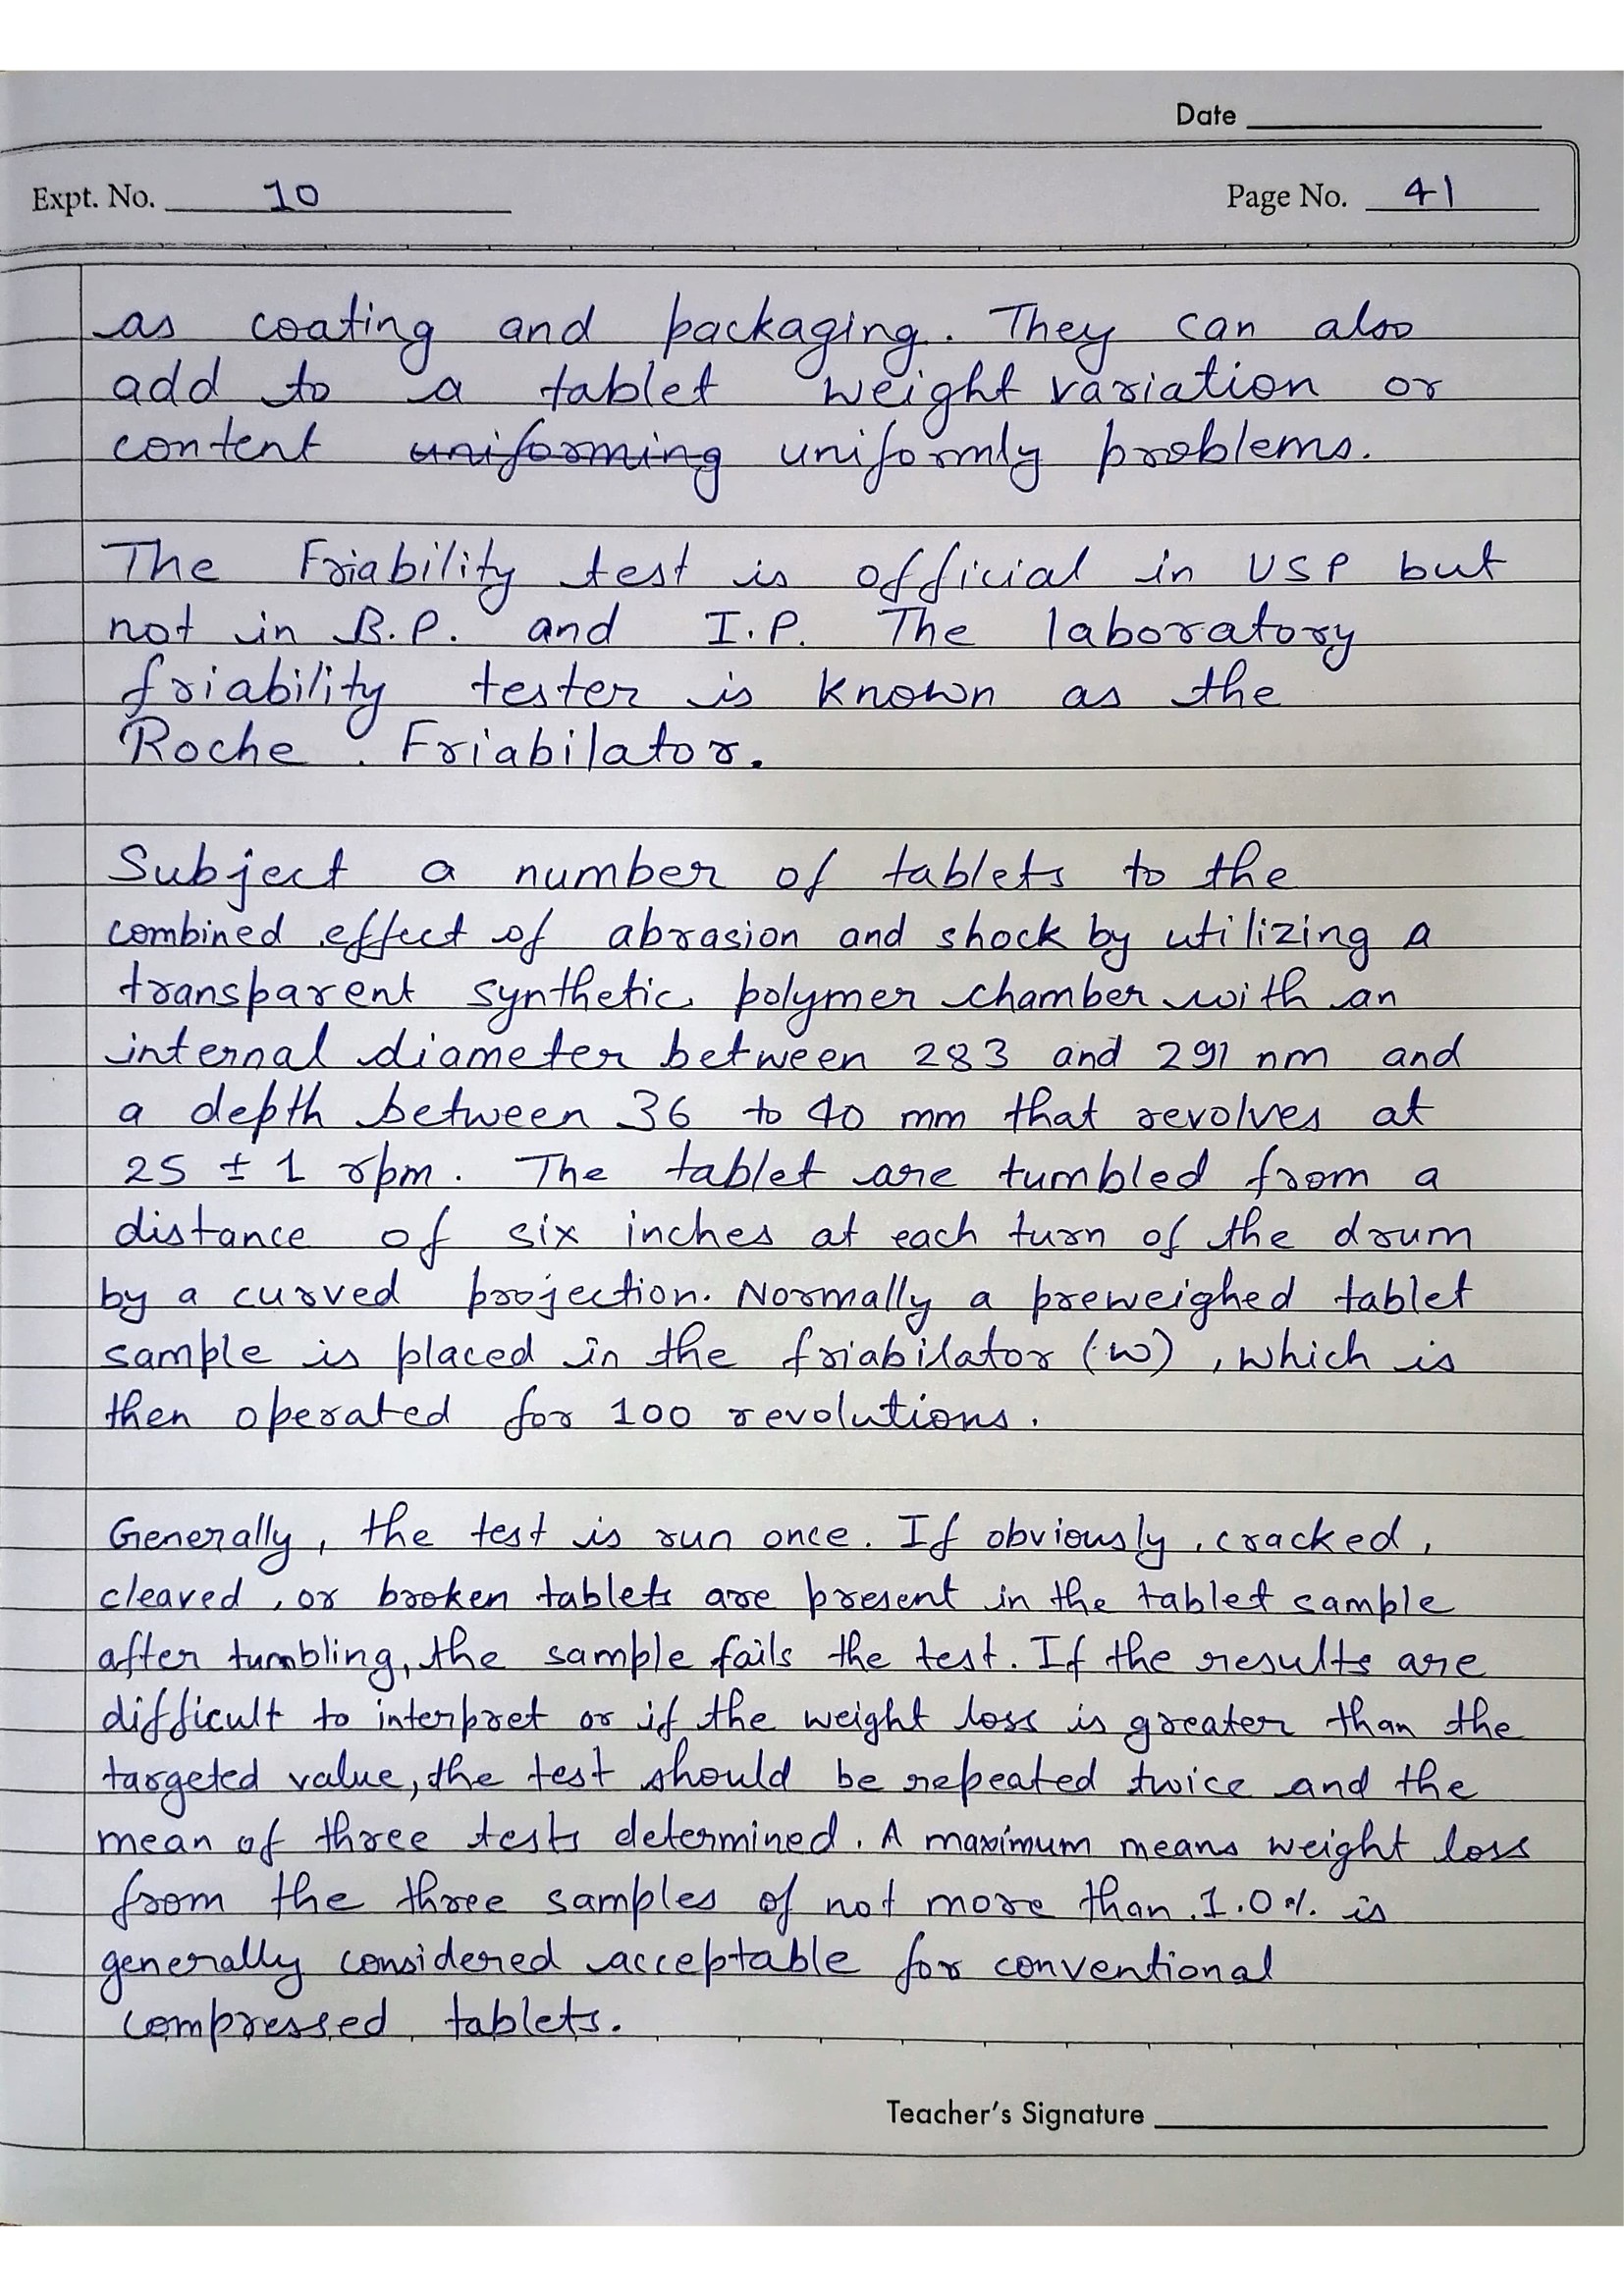 Date
Expt. No. 10
Page No. 41
as coating and packaging. They can also
add to a tablet weight variation or
content uniforming uniformly problems.
The Friability test is official in USP but
not in B.P. and I.P. The laboratory
friability tester is known as the
Roche . Friabilator.
Subject a number of tablets to the
combined effect of abrasion and shock by utilizing a
transparent synthetic polymer chamber with an
internal diameter between 283 and 291 nm and
a depth between 36 to 40 mm that revolves at
25 ± 1 rpm. The tablet are tumbled from a
distance of six inches at each turn of the drum
by a curved projection. Normally a preweighed tablet
sample is placed in the friabilator (w), which is
then operated for 100 revolutions.
Generally, the test is run once. If obviously, cracked,
cleaved, or broken tablets are present in the tablet sample
after tumbling, the sample fails the test. If the results are
difficult to interpret or if the weight loss is greater than the
targeted value, the test should be repeated twice and the
mean of three tests determined. A maximum means weight loss
from the three samples of not more than 1.0% is
generally considered acceptable for conventional
compressed tablets.
Teacher's Signature